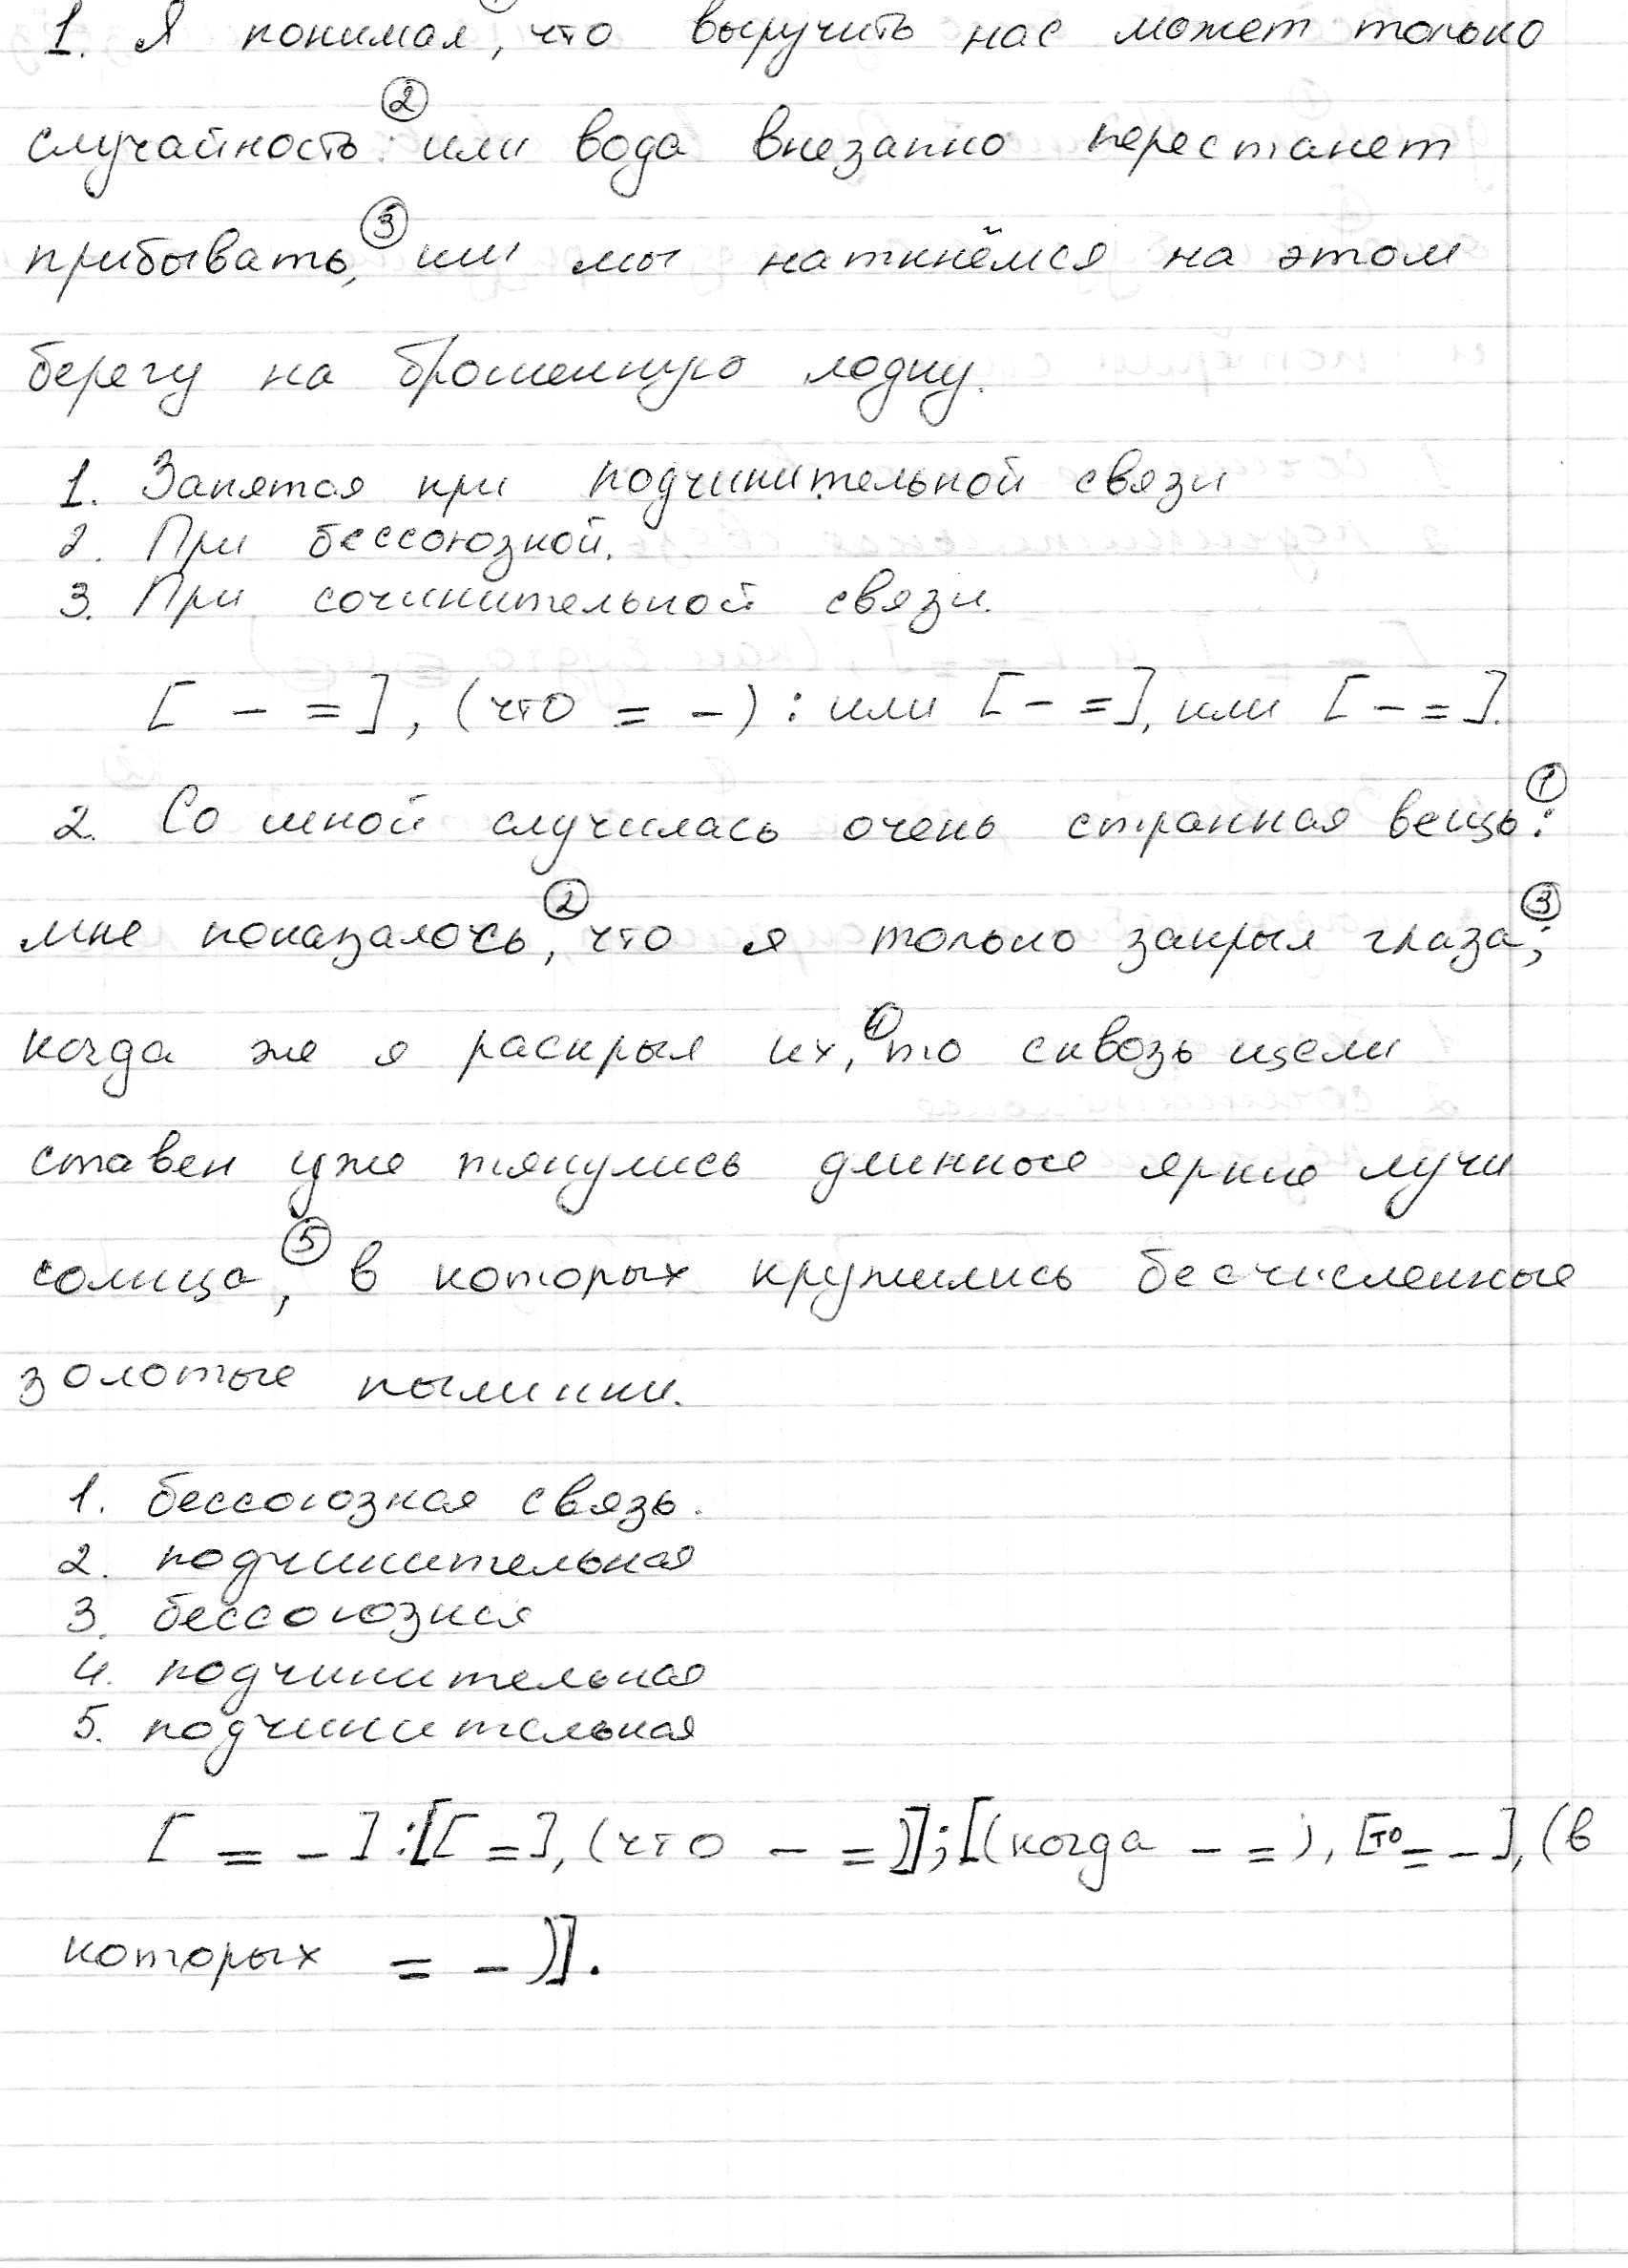 1. Я понимал, что выручить нас может только
②
случайность: или вода внезапно перестанет
③
прибывать, или мы наткнёмся на этом
берегу на брошенную лодку.
1. Запятая при подчинительной связи
2. При бессоюзной.
3. При сочинительной связи.
[ – = ], (что = –) : или [ – = ], или [ – = ].
①
2. Со мной случилась очень странная вещь:
② ③
мне показалось, что я только закрыл глаза;
④
когда же я раскрыл их, то сквозь щели
ставен уже тянулись длинные яркие лучи
⑤
солнца, в которых кружились бесчисленные
золотые пылинки.
1. бессоюзная связь.
2. подчинительная
3. бессоюзная
4. подчинительная
5. подчинительная
[ = – ] : [[ = ], (что – = )] ; [(когда – = ), [то = – ], (в
которых = – )].